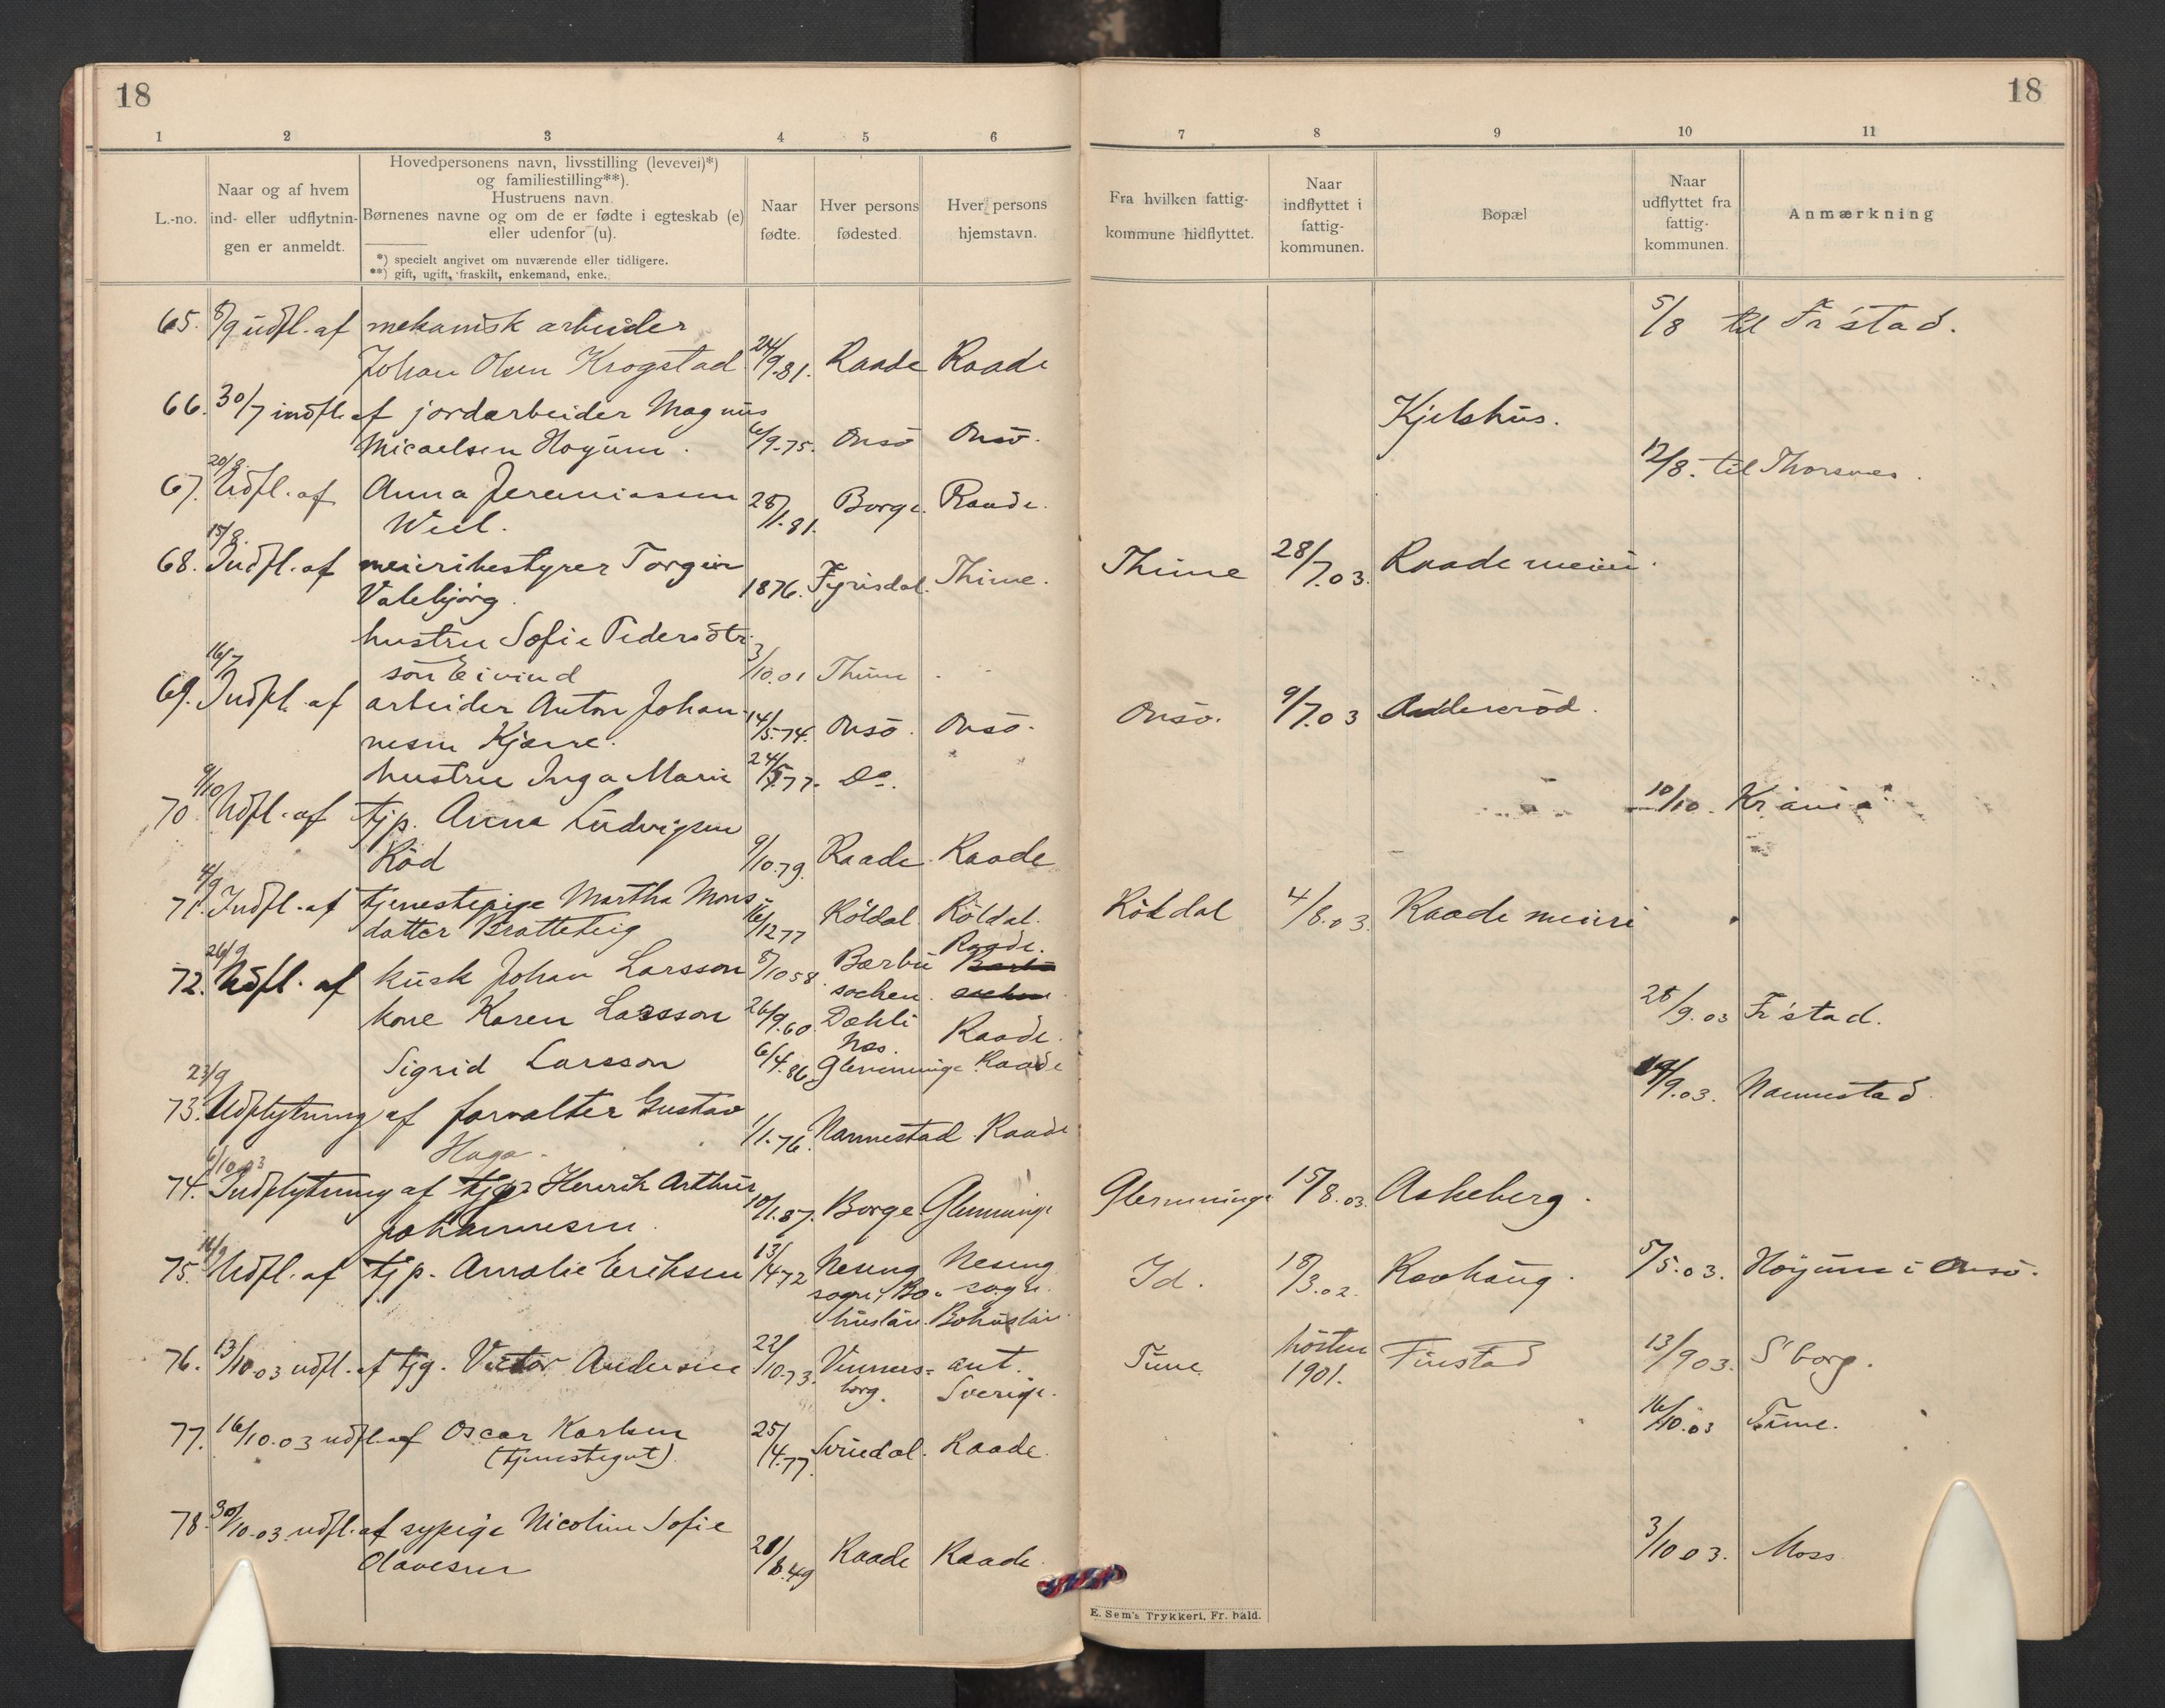 18
18
1 2 3 4 5 6 7 8 9 10 11
L.-no.
Naar og af hvem ind- eller udflytnin- gen er anmeldt.
Hovedpersonens navn, livsstilling (levevei)*)
og familiestilling**).
Hustruens navn.
Børnenes navne og om de er fødte i egteskab (e)
eller udenfor (u).
*) specielt angivet om nuværende eller tidligere.
**) gift, ugift, fraskilt, enkemand, enke.
Naar fødte.
Hver persons fødested.
Hver persons hjemstavn.
Fra hvilken fattig- kommune hidflyttet.
Naar indflyttet i fattig- kommunen.
Bopæl
Naar udflyttet fra fattig- kommunen.
Anmærkning
65. 8/9 udfl. af mekanisk arbeider 5/8 til Fr'stad.
Johan Olsen Krogstad 24/9.81. Raade Raade
66. 30/7 indfl. af jordarbeider Magnus Kjelshus.
Micaelsen Høgum. 6/9-75. Onsø Onsø.
20/8. 12/8. til Thorsnes.
67. Udfl. af Anna Jeremiassen 28/1.81. Borge. Raade.
Weel.
15/8.
68. Indfl. af meieribestyrer Torgeir Thime 28/7.03. Raade meieri.
Valebjørg. 1876. Fyrisdal. Thime.
hustru Sofie Pedersdtr.
16/7 søn Eivind 3/10.01 Thime
69. Indfl. af arbeider Anton Johan- 14/5.74. Onsø. Onsø. Onsø. 9/7.03
nesen Kjærre.
hustru Inga Marie 24/5.77. Do.
9/10
70 Udfl. af tjp. Anna Ludvigsen 10/10. Kr.ania
Rød 9/10.79. Raade. Raade
4/9
71. Indfl. af tjenestepige Martha Mons- Röldal. Röldal. Röldal 4/8.03. Raade meieri
datter Bratteteig 16/12 77
26/9 Raade.
72. Udfl. af kusk Johan Larsson 8/10 58 Bærbu
sochen.
kone Karen Larsson 26/9.60. Dæhli Raade. 28/9.03 Fr'stad.
Næs.
Sigrid Larsson 6/4.86 Glemminge Raade
23/9 Nannestad
73. Udflytning af forvalter Gustav 1/1.76. Nannestad Raade
Haga.
6/10 03
74. Indflytning af tjg. Henrik Arthur 10/1.87. Borge Glemminge Glemminge 15/8.03. Askeberg.
Johannesen.
16/9
75. Udfl. af tjp. Annalie Eriksen 13/4 72 Nesung Nesung Id. 18/3.02. Ravhaug. 5/5.03. Høyum i Onsø.
sogn i Bo- sogn.
huslän. Bohuslän.
76. 13/10-03 udfl. af tjg. Victor Andersen 22/10-73. Venners- ant. Tune høsten 1901. Finstad 13/9 03. S'borg.
borg. Sverige.
77. 16/10.03 udfl. af Oscar Karlsen 25/4.77. Svindal. Raade. 16/10.03 Tune.
(tjenestegut).
78. 30/10-03 udfl. af sypige Nicoline Sofie 3/10 03. Moss
Olavesen 28/8.49 Raade Raade.
E. Sem's Trykkeri, Fr. hald.